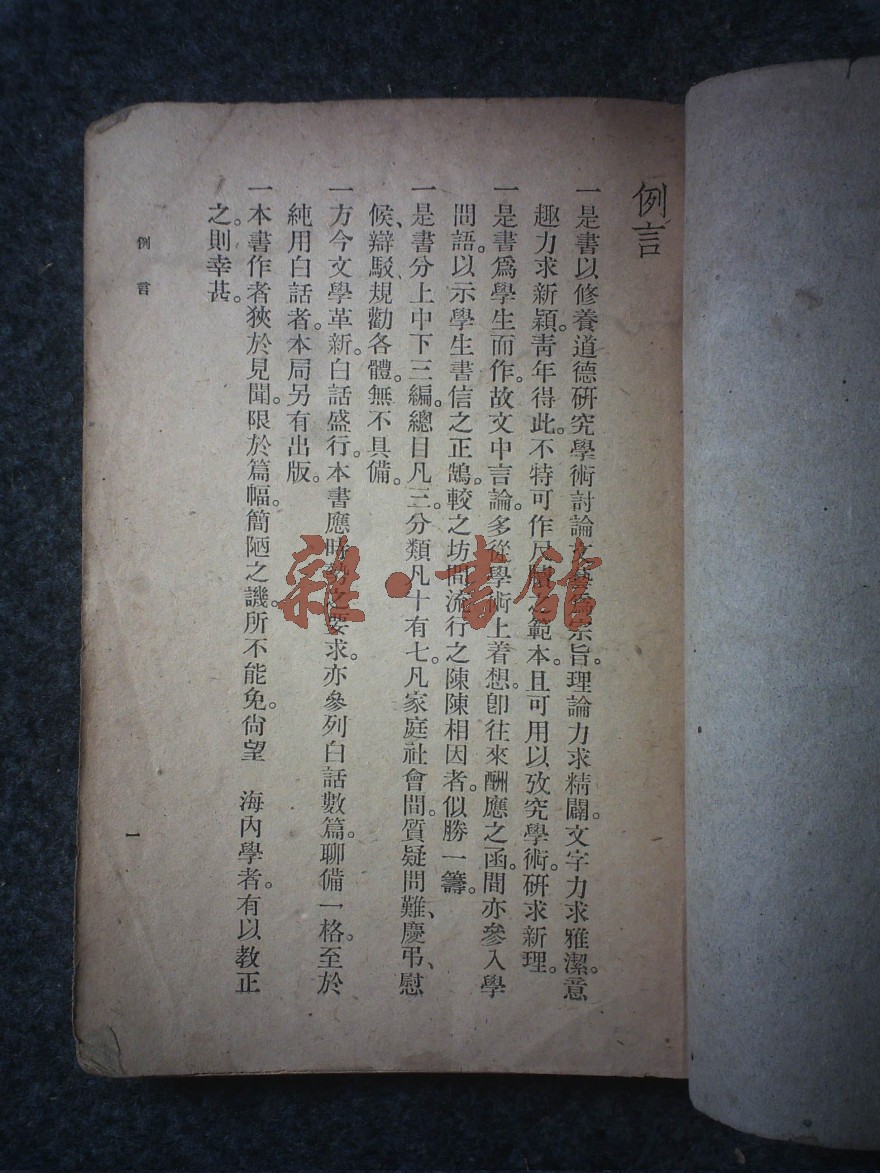 例言
一是書以修養道德研究學術討論文藝爲宗旨。理論力求精闢。文字力求雅潔。意
趣力求新穎。靑年得此。不特可作尺牘之範本。且可用以攷究學術。研求新理。
一是書爲學生而作。故文中言論。多從學術上着想。卽往來酬應之函。間亦參入學
問語。以示學生書信之正鵠。較之坊間流行之陳陳相因者。似勝一籌。
一是書分上中下三編。總目凡三。分類凡十有七。凡家庭社會間。質疑問難、慶弔、慰
候、辯駁規勸各體。無不具備。
一方今文學革新。白話盛行。本書應時勢之要求。亦參列白話數篇。聊備一格。至於
純用白話者。本局另有出版。
一本書作者狹於見聞。限於篇幅。簡陋之譏。所不能免。尙望 海內學者。有以敎正
之。則幸甚。
例言
一
雜·書館